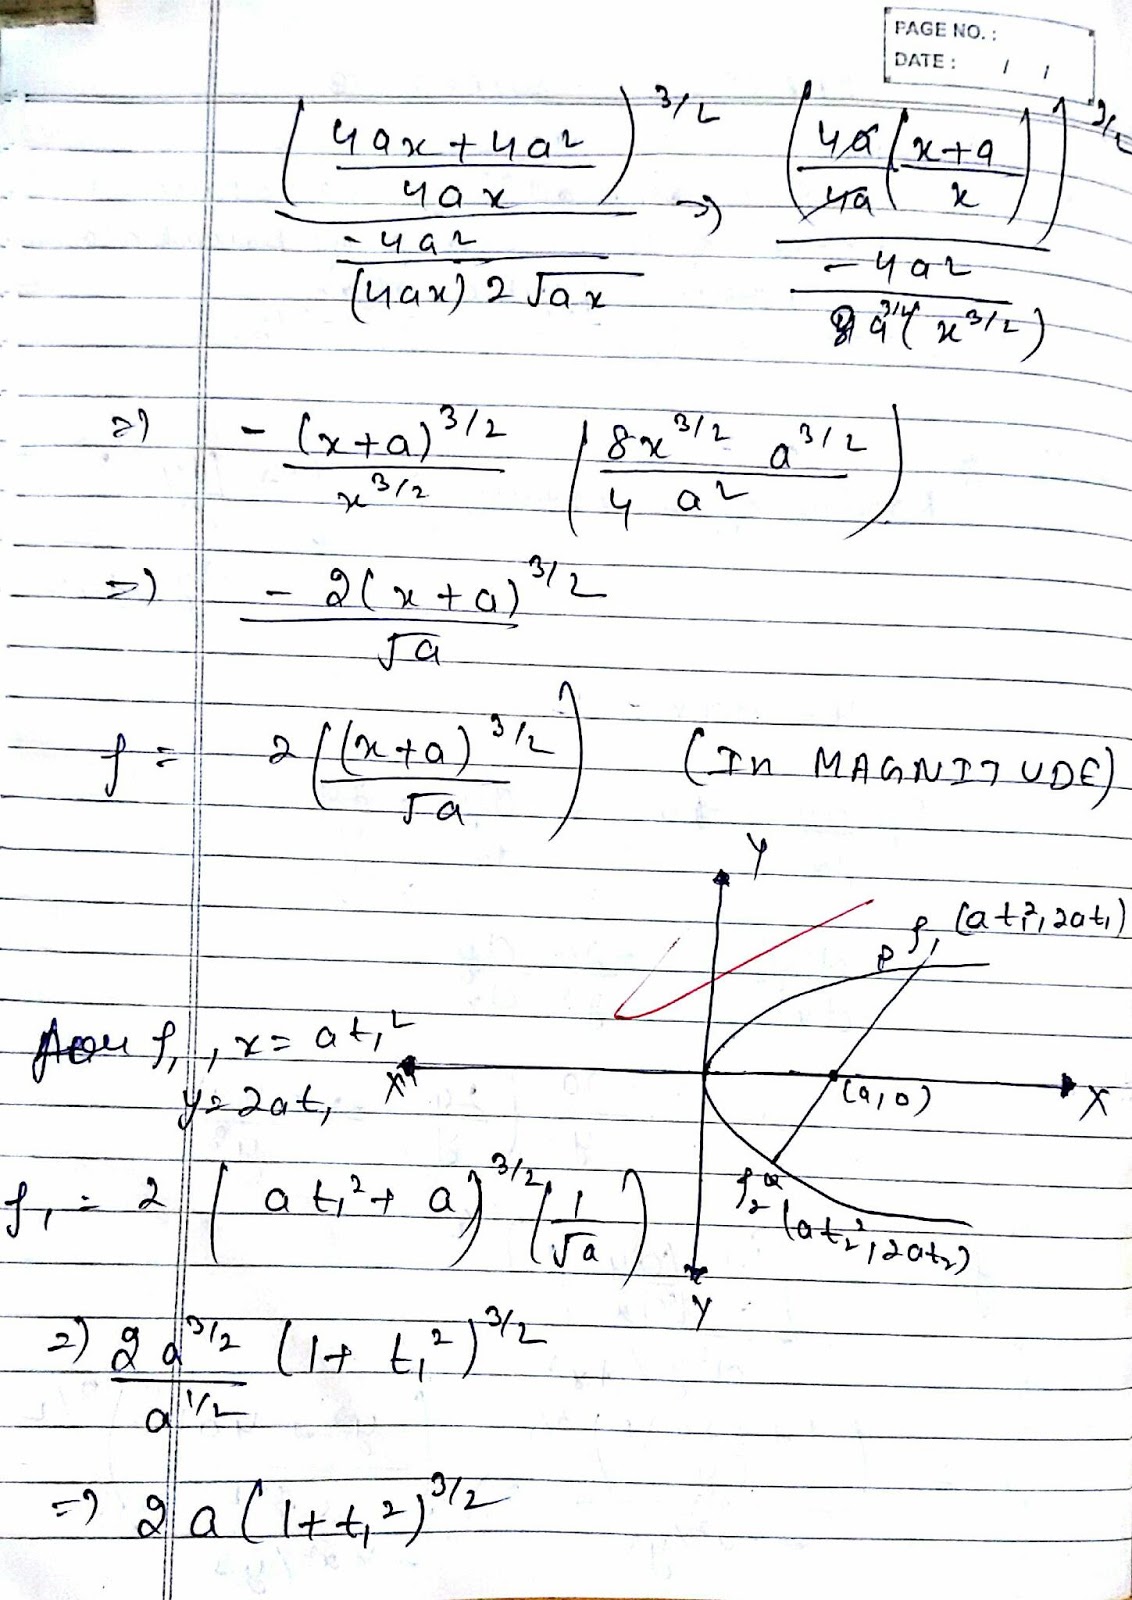 PAGE NO. :
DATE : / /
((4ax + 4a²)/(4ax))^3/2 / (-4a²/((4ax) 2√ax)) => ((4a/4a)((x+a)/x))^3/2 / (-4a²/(8 a^3/2 (x^3/2)))
=) - (x+a)^3/2 / x^3/2 (8x^3/2 a^3/2 / 4 a²)
=) - 2(x+a)^3/2 / √a
ρ = 2((x+a)^3/2 / √a) (In MAGNITUDE)
Y
P ρ₁ (at₁², 2at₁)
ρ₁, x = at₁²
X' (a, 0) X
y = 2at₁
ρ₁ = 2 (at₁² + a)^3/2 (1/√a)
ρ₂ Q (at₂², 2at₂)
Y
=) 2a^3/2 / a^1/2 (1 + t₁²)^3/2
=) 2a(1+t₁²)^3/2